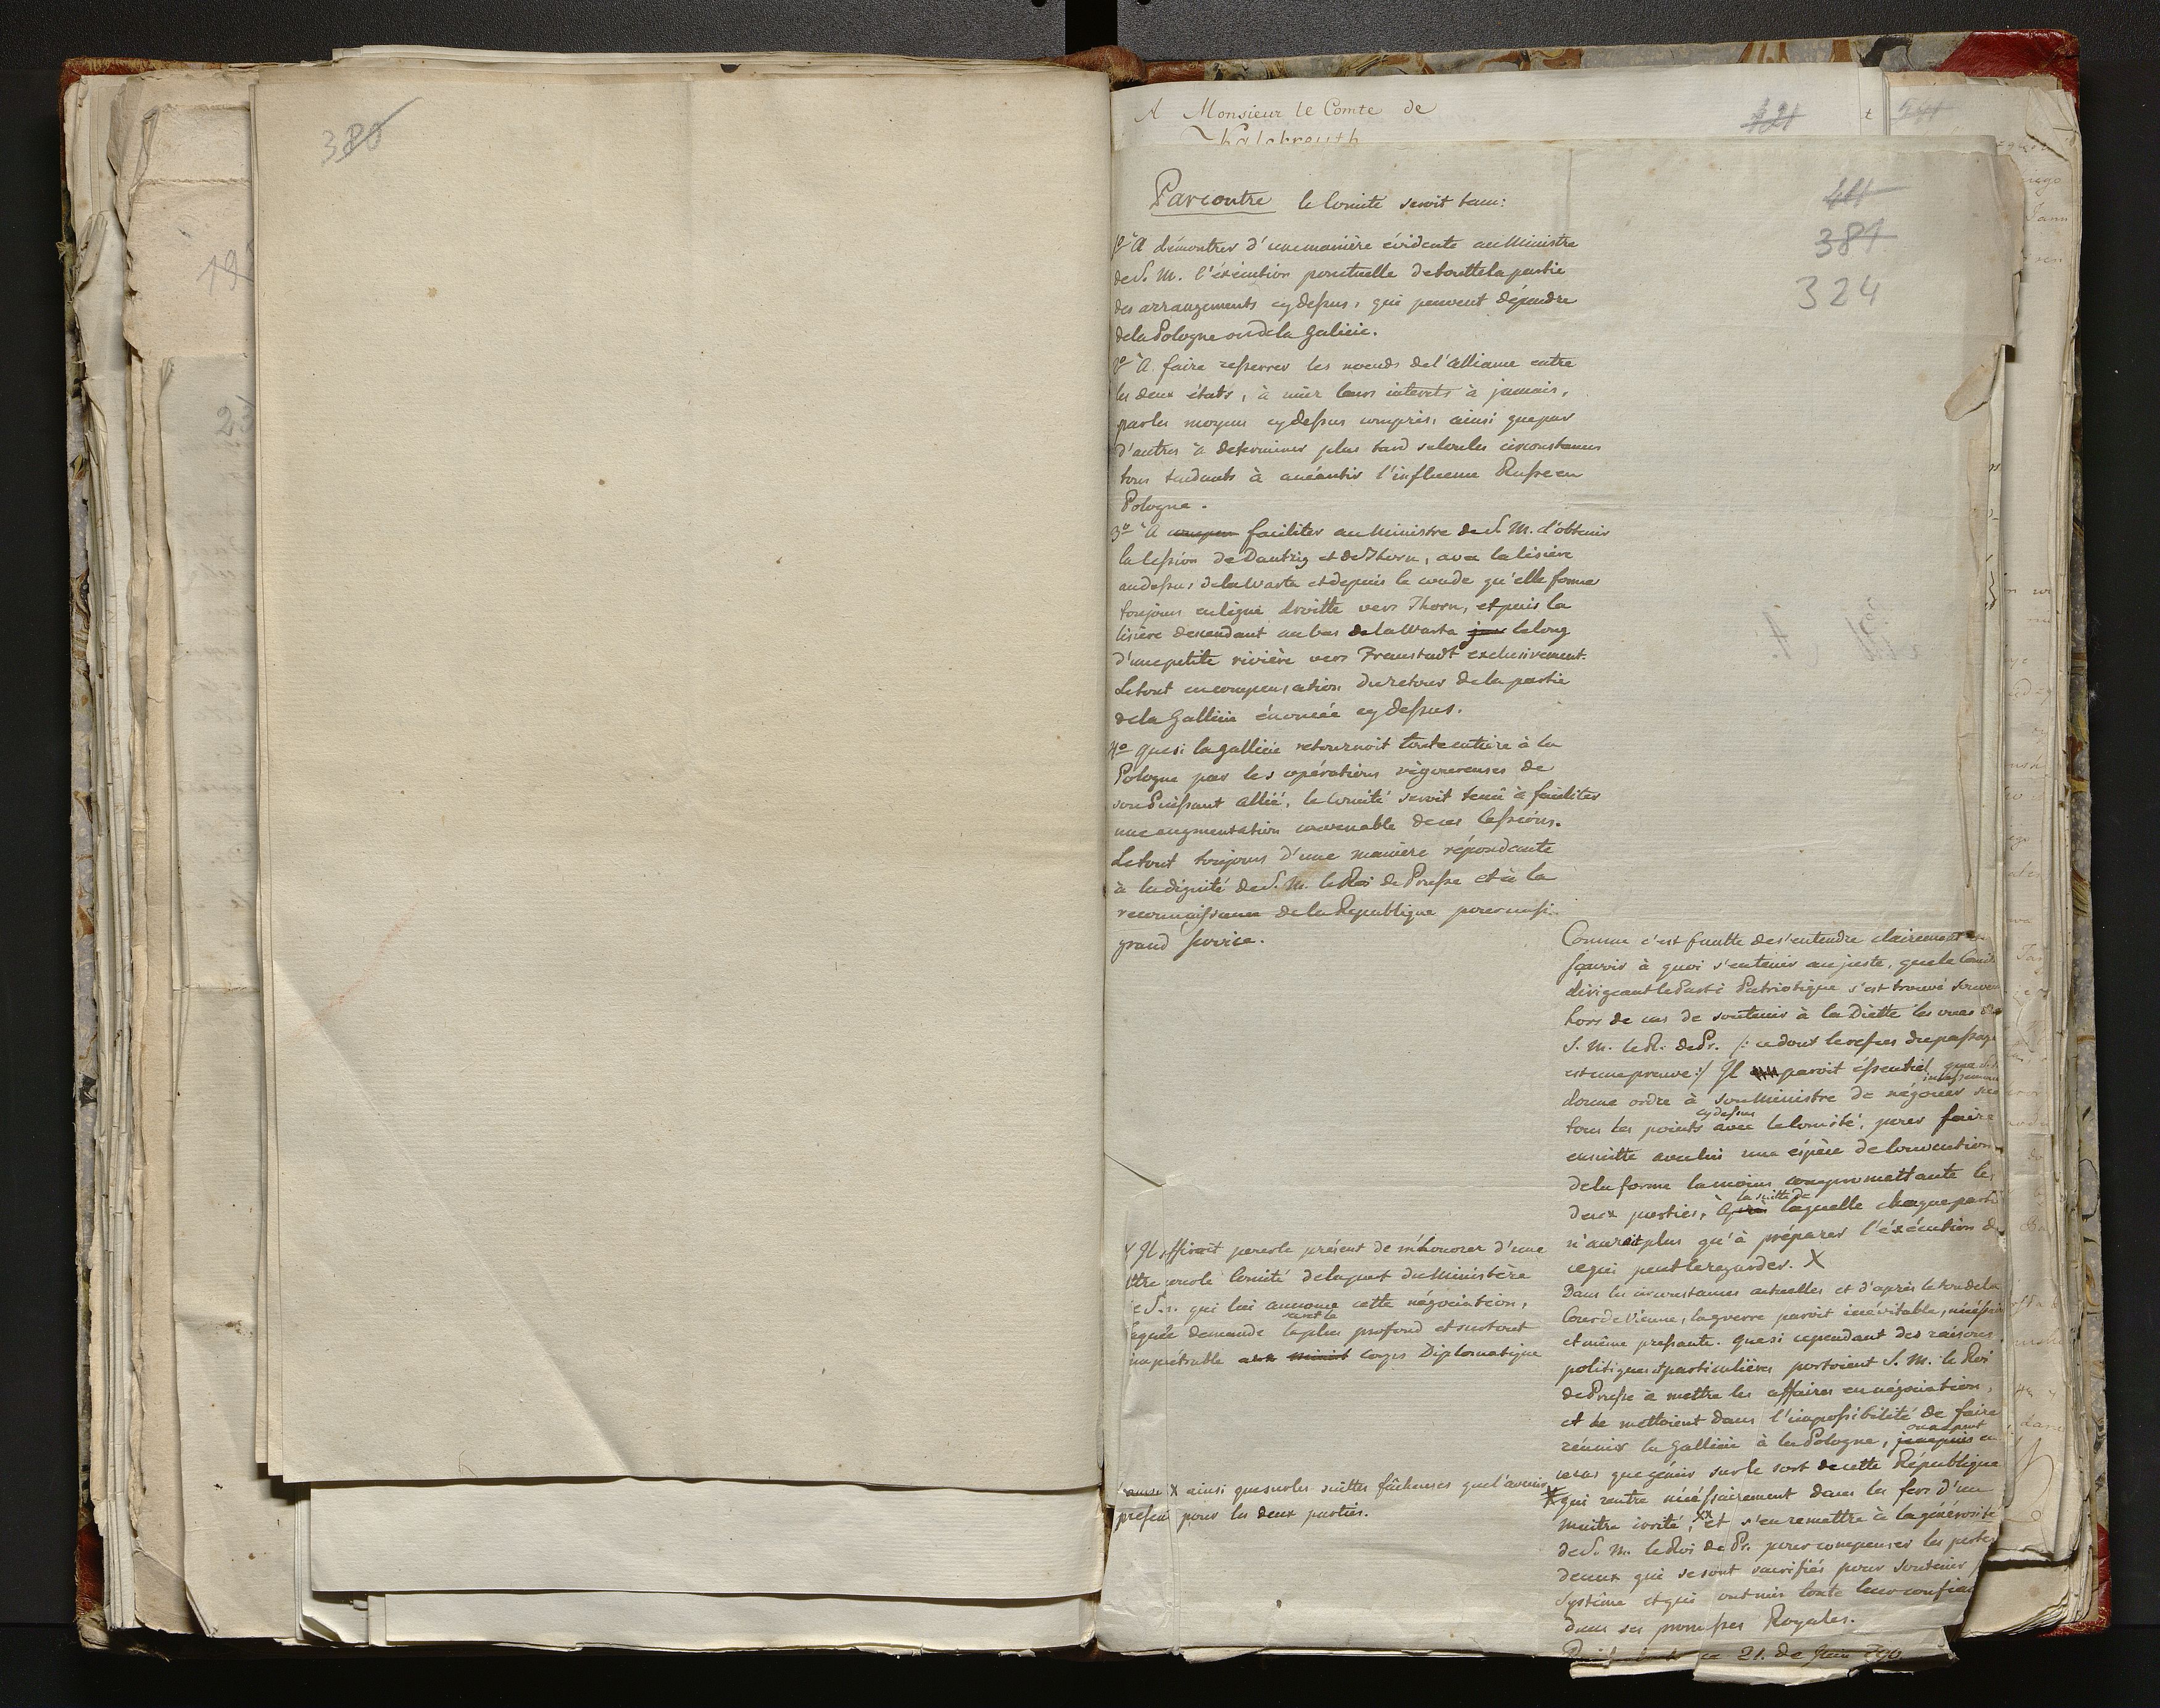 380
A Monsieur le Comte de
Parcontre le Comité seroit tenu:
1º À démontrer d'une manière évidente au Ministre
de S. M. l'éxécution ponctuelle de toutte la partie
des arrangements cy dessus, qui peuvent dépendre
de la Pologne ou de la Galicie.
2º À faire resserrer les noeuds de l'Alliance entre
les deux états, à unir leurs interets à jamais,
par les moyens cy dessus compris, ainsi que par
d'autres à determiner plus tard selon les circonstances
tous tendants à anéantir l'influence Russe en
Pologne.
3º À faciliter au Ministre de S. M. d'obtenir
la Cession de Dantzig et de Thorn, avec la lisière
au dessus de la Warta et depuis le coude qu'elle forme
toujours en ligne droitte vers Thorn, et puis la
lisière descendant au bas de la Warta le long
d'une petite rivière vers Fraustadt exclusivement.
Le tout en compensation du retour de la partie
de la Gallicie énoncée cy dessus.
4º Que si la Gallicie retournoit toute entière à la
Pologne par les opérations vigoureuses de
son Puissant Allié, le Comité seroit tenu à faciliter
une augmentation convenable de ces Cessions.
Le tout toujours d'une manière répondante
à la dignité de S. M. le Roi de Prusse et à la
reconnoissance de la Republique pour un si
grand service.
421
411
381
324
Comme c'est faute de s'entendre clairement et
sçavoir à quoi s'entenir au juste, que le Comité
dirigeant le Parti Patriotique s'est trouvé souvent
hors de cas de soutenir à la Diette les vues de
S. M. le R. de Pr. /: ce dont le refus du passage
est une preuve :/ Il paroit éssentiel que
donne ordre à son Ministre de négocier sur
tous les points cy dessus avec le Comité, pour faire
ensuitte avec lui une éspèce de Convention
de la forme la moins compromettante les
deux parties, à la suitte de laquelle chaque parti
n'auroit plus qu'à préparer l'éxécution de
ce qui peut le regarder. X
Dans les circonstances actuelles et d'après le ton de la
Cour de Vienne, la guerre paroit inévitable, nécéssaire
et même pressante. Que si cependant des raisons
politiques et particulières portoient S. M. le Roi
de Prusse à mettre les affaires en négociation,
et le mettoient dans l'impossibilité de faire
réunir la Gallicie à la Pologne, on ne peut en
ce cas que gémir sur le sort de cette République
X qui rentre nécéssairement dans les fers d'un
maitre irrité, XX et s'en remettre à la générosité
de S. M. le Roi de Pr. pour compenser les pertes
de ceux qui se sont sacrifiés pour soutenir
Système et qui ont mis toute leur confiance
dans ses promesses Royales.
ce 21. de Juin 790.
X Il suffiroit pour le présent de m'honorer d'une
lettre pour le Comité de la part du Ministère
qui lui annonce cette négociation,
laquelle demande le plus profond et surtout
impénétrable Corps Diplomatique
X ainsi que sur les suittes fâcheuses que l'avenir
pour les deux parties.